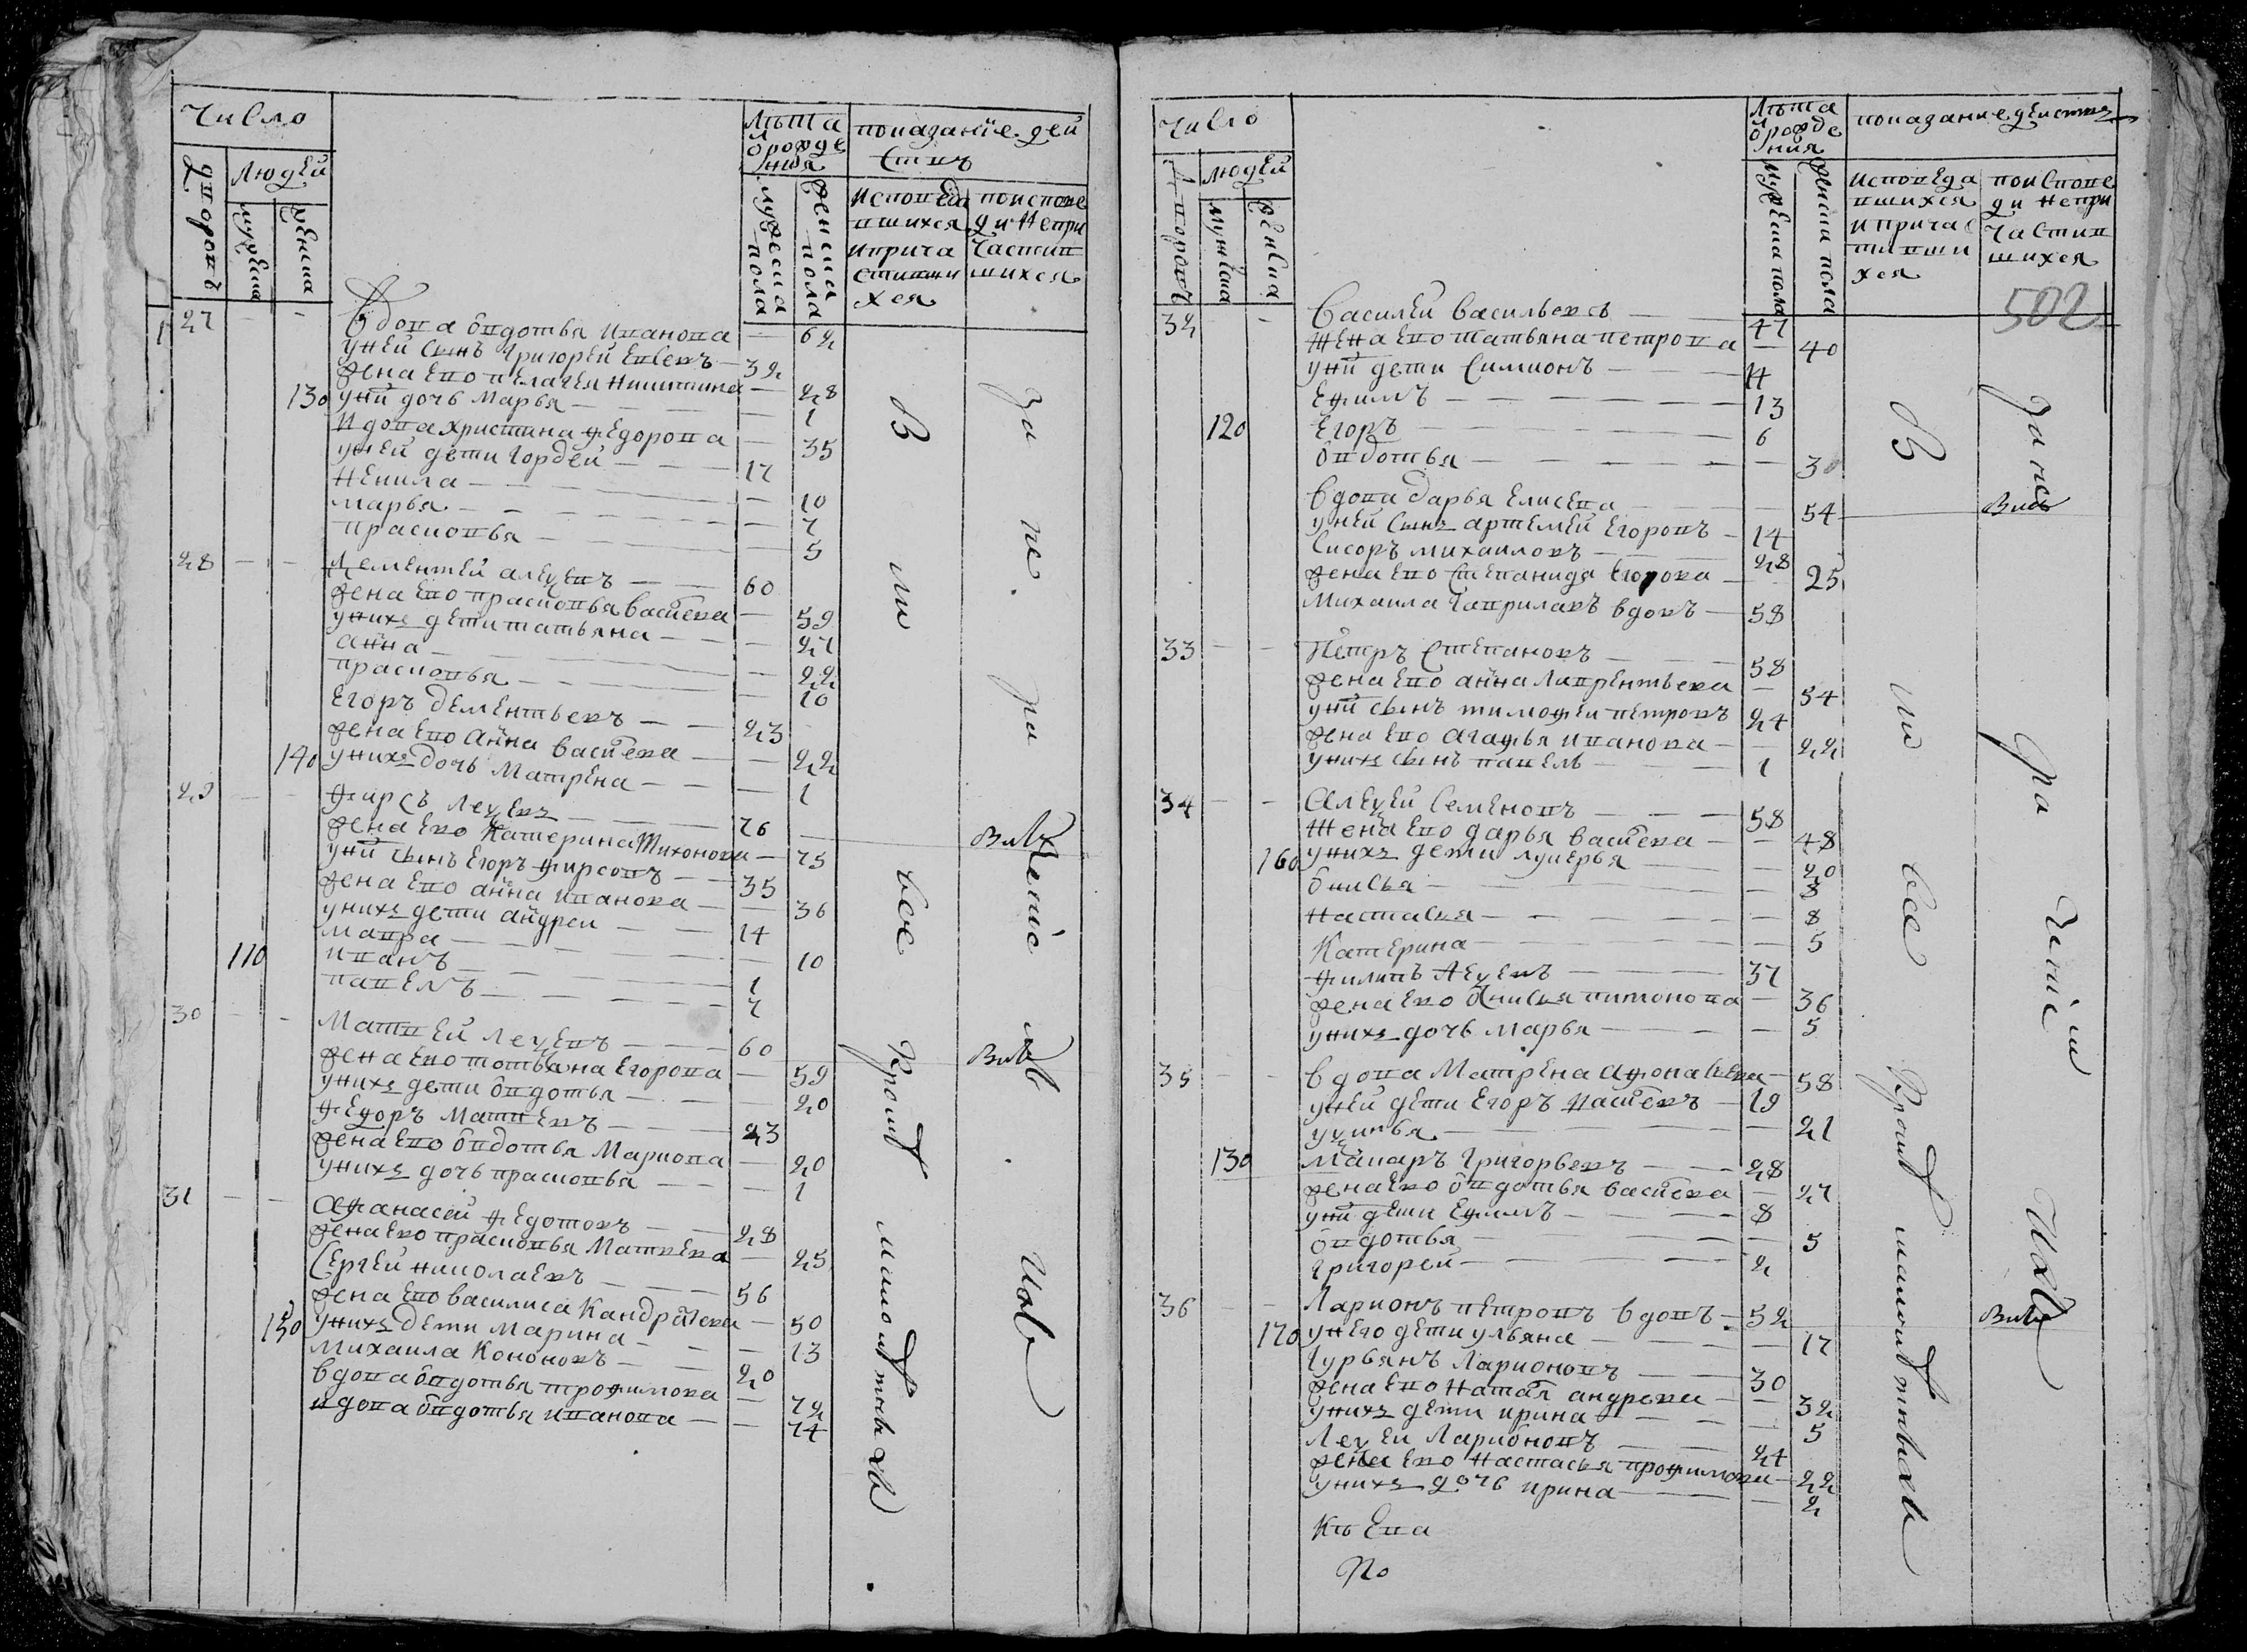 Число
дворовъ
Людей
мужеска
женска
Лѣта
ѿ рожде
ния
мужеска пола
женска пола
показание дей
ствъ
исповеда
вшихся
и прича
стивши
хся
по испове
ди непри
частив
шихся
27 - - Вдова Овдотья Иванова — 62
у ней сынъ Григорей Евсевъ — 32
жена ево Пелагея Никитина — 28
130 у них дочь Марья — 1
Вдова Христина Федорова — 35
у ней дети Гордей — 17
Ненила — 10
Марья — 7
Прасковья — 5
28 - - Дементей Алеѯевъ — 60
жена ево Прасковья Васильева — 59
у нихъ дети Татьяна — 27
Анна — 22
Прасковья — 10
Егоръ Дементьевъ — 23
жена ево Анна Васильева — 22
140 у нихъ дочь Матрена — 1
29 - - Фирсъ Леѯевъ — 76
жена ево Катерина Тихонова — 75
у них сынъ Егоръ Фирсовъ — 35
жена ево Анна Иванова — 36
у нихъ дети Андреи — 14
Мавра — 10
110 Иванъ — 1
Павелъ — 7
30 - - Матвей Леѯевъ — 60
жена ево Тотьяна Егорова — 59
у нихъ дети Овдотья — 20
Федоръ Матвевъ — 23
жена ево Овдотья Маркова — 20
у нихъ дочь Прасковья — 1
31 - - Афанасей Федотовъ — 28
жена ево Прасковья Матвева — 25
Сергей Николаевъ — 56
жена ево Василиса Кандратева — 50
150 у нихъ дети Марина — 13
Михаила Кононовъ — 20
вдова Овдотья Трофимова — 72
вдова Овдотья Иванова — 74
В
ли
все
кроме
малолетных
за не
ра
чение
ихъ
Число
дворовъ
Людей
мужска
женска
Лѣта
ѿ рожде
ния
мужеска пола
женска пола
показание действъ
исповеда
вшихся
и причас
тивши
хся
по испове
ди непри
частив
шихся
502
32 - - Василей Васильевъ — 47
жена ево Татьяна Петрова — 40
у них дети Симионъ — 14
Ефимъ — 13
120 Егоръ — 6
Овдотья — 30
вдова Дарья Елисева — 54
у ней сынъ Артемей Егоровъ — 14
Сисоръ Михаиловъ — 28
жена ево Степанида Егорова — 25
Михаила Гаврилавъ вдовъ — 58
33 - - Петръ Степановъ — 58
жена ево Анна Лаврентьева — 54
у них сынъ Тимофеи Петровъ — 24
жена ево Агафья Иванова — 22
у нихъ сынъ Павелъ — 1
34 - - Алеѯей Семеновъ — 58
жена ево Дарья Васильева — 48
160 у нихъ дети Лукерья — 20
Онисья — 3
Настасья — 8
Катерина — 5
Филипъ Леѯевъ — 37
жена ево Онисья Пимонова — 36
у нихъ дочь Марья — 5
35 - - вдова Матрена Афонасева — 58
у ней дети Егоръ Васильевъ — 19
— 21
130 Макаръ Григорьевъ — 28
жена ево Овдотья Васильева — 27
у них дети Ефимъ — 8
Овдотья — 5
Григорей — 2
36 - - Ларионъ Петровъ вдовъ — 52
170 у него дети Ульяна — 17
Гурьянъ Ларионовъ — 30
жена ево Наталя Андреева — 32
у нихъ дети Ирина — 5
Леѯеи Ларионовъ — 24
жена ево Настасья Трофимова — 22
у нихъ дочь Ирина — 2
В
ли
все
кроме
малолетныхъ
за не
ра
чение
ихъ